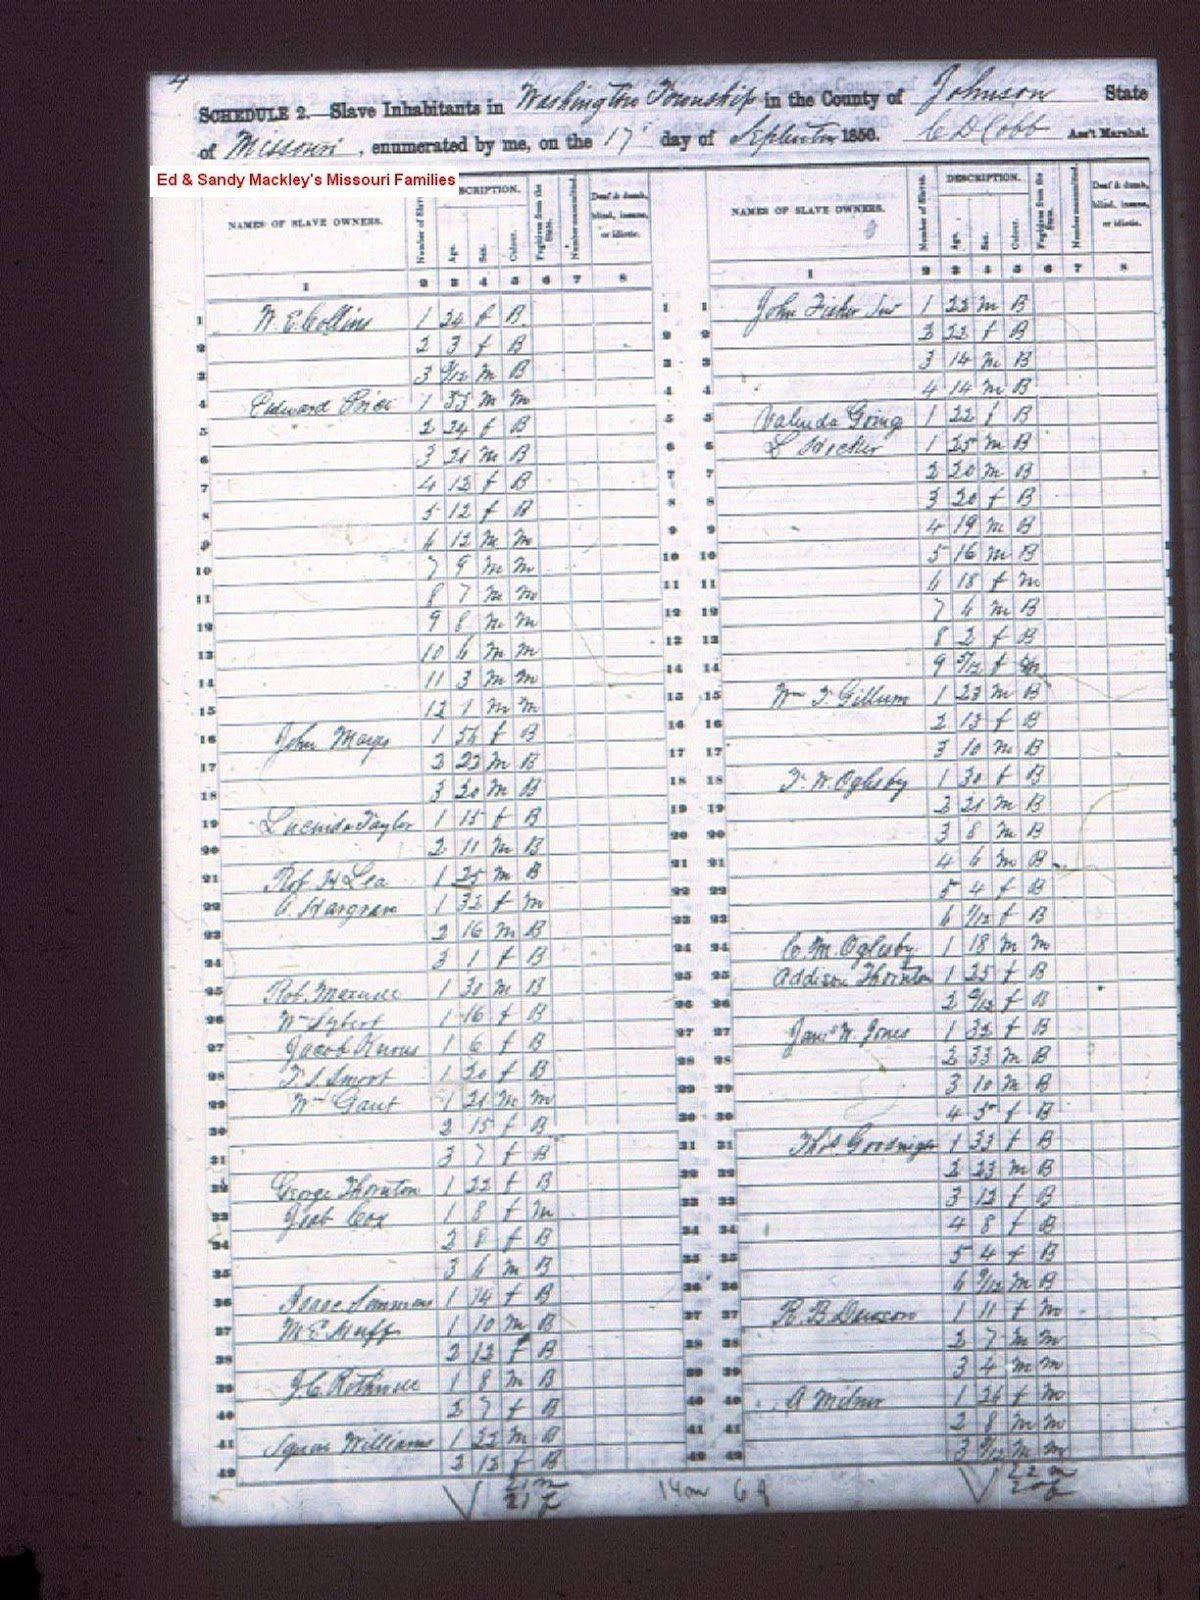 4
SCHEDULE 2.—Slave Inhabitants in Washington Township in the County of Johnson State
of Missouri, enumerated by me, on the 17 day of September 1850. C D Cobb Ass't Marshal.
Ed & Sandy Mackley's Missouri Families
NAMES OF SLAVE OWNERS. Number of Slaves. DESCRIPTION. Age. Sex. Colour. Fugitives from the State. Number manumitted. Deaf & dumb, blind, insane, or idiotic.
1 2 3 4 5 6 7 8
1 W. E. Collins 1 24 f B 1
2 2 3 f B 2
3 3 /12 m B 3
4 Edward Price 1 33 m m 4
5 2 24 f B 5
6 3 21 m B 6
7 4 12 f B 7
8 5 12 f B 8
9 6 12 m m 9
10 7 9 m m 10
11 8 7 m m 11
12 9 8 m m 12
13 10 6 m m 13
14 11 3 m m 14
15 12 1 m m 15
16 John Mayes 1 56 f B 16
17 2 23 m B 17
18 3 20 m B 18
19 Lucinda Taylor 1 15 f B 19
20 2 11 m B 20
21 H Lea 1 25 m B 21
22 Hargrave 1 32 f m 22
23 2 16 m B 23
24 3 1 f B 24
25 Rob. 1 30 m B 25
26 Wm Sybert 1 16 f B 26
27 Jacob Knaus 1 6 f B 27
28 T. S. Smoot 1 20 f B 28
29 Wm Gaut 1 21 m m 29
30 2 15 f B 30
31 3 7 f B 31
32 George Thornton 1 22 f B 32
33 Cox 1 8 f m 33
34 2 8 f B 34
35 3 6 m B 35
36 Isaac Simmons 1 14 f B 36
37 M E Huff 1 10 m B 37
38 2 12 f B 38
39 J. C. Rothwell 1 8 m B 39
40 2 7 f B 40
41 Squire Williams 1 22 m B 41
42 2 12 f B 42
21 m
21 f
NAMES OF SLAVE OWNERS. Number of Slaves. DESCRIPTION. Age. Sex. Colour. Fugitives from the State. Number manumitted. Deaf & dumb, blind, insane, or idiotic.
1 2 3 4 5 6 7 8
1 John Fisher 1 22 m B
2 2 22 f B
3 3 14 m B
4 4 14 m B
5 Valinda Going 1 22 f B
6 L Hocker 1 25 m B
7 2 20 m B
8 3 20 f B
9 4 19 m B
10 5 16 m B
11 6 18 f m
12 7 6 m B
13 8 2 f B
14 9 /12 f m
15 Wm T. Gillum 1 23 m B
16 2 13 f B
17 3 10 m B
18 T. W. Oglesby 1 30 f B
19 2 21 m B
20 3 8 m B
21 4 6 m B
22 5 4 f B
23 6 /12 f B
24 C. M. Oglesby 1 18 m m
25 Addison Thornton 1 25 f B
26 2 9/12 f B
27 Jams W. Jones 1 32 f B
28 2 33 m B
29 3 10 m B
30 4 5 f B
31 Thos Goodnight 1 33 f B
32 2 23 m B
33 3 12 f B
34 4 8 f B
35 5 4 f B
36 6 9/12 m B
37 R. B. 1 11 f m
38 2 7 m m
39 3 4 m m
40 A Milner 1 26 f m
41 2 8 m m
42 3 9/12 m m
14 m 6 f
22 m
20 f